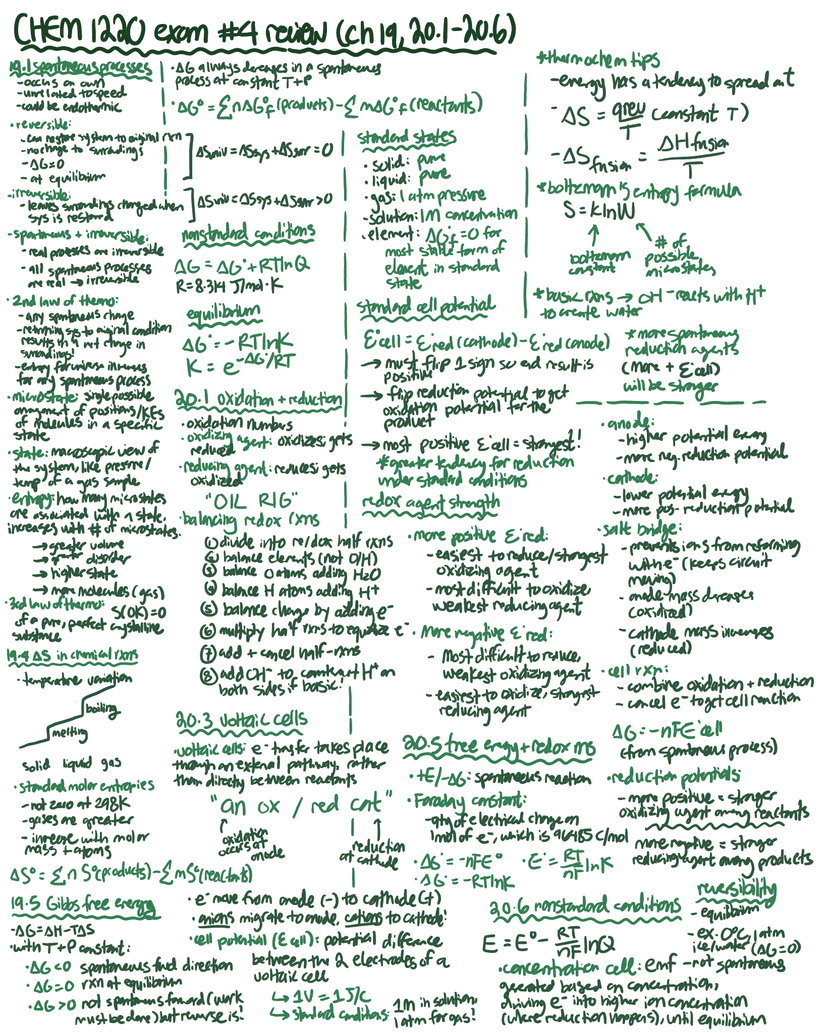 CHEM 1220 exam #4 review (ch 19, 20.1-20.6)
19.1 spontaneous processes
-occurs on own
-unrelated to speed
-could be endothermic
•reversible:
-can restore system to original rxn
-no change to surroundings
-ΔG=0
-at equilibrium
-irreversible:
-leaves surroundings changed when
sys is restored
-spontaneous + irreversible:
-real processes are irreversible
-all spontaneous processes
are real → irreversible
•2nd law of thermo:
-any spontaneous change
-returning sys to original condition
results in a net change in
surroundings!
-entropy for universe increases
for any spontaneous process
•microstate: single possible
arrangement of positions/KEs
of molecules in a specific
state
•state: macroscopic view of
the system, like pressure/
temp of a gas sample
•entropy: how many microstates
are associated with a state,
increases with # of microstates.
→greater volume
→greater disorder
→higher state
→more molecules (gas)
•3rd law of thermo: S(0K)=0
of a pure, perfect crystalline
substance
19.4 ΔS in chemical rxns
•temperature variation
boiling
melting
solid liquid gas
•standard molar entropies
-not zero at 298K
-gases are greater
-increase with molar
mass + atoms
ΔS°=∑nS°(products)-∑mS°(reactants)
19.5 Gibbs free energy
-ΔG=ΔH-TΔS
•with T+P constant:
•ΔG<0 spontaneous fwd direction
•ΔG=0 rxn at equilibrium
•ΔG>0 not spontaneous forward (work
must be done) but reverse is!
•ΔG always decreases in a spontaneous
process at constant T+P
•ΔG°=∑nΔG°f(products)-∑mΔG°f(reactants)
ΔSuniv=ΔSsys+ΔSsurr=0
ΔSuniv=ΔSsys+ΔSsurr>0
nonstandard conditions
ΔG=ΔG°+RTlnQ
R=8.314 J/mol·K
equilibrium
ΔG°=-RTlnK
K=e^-ΔG°/RT
20.1 oxidation+reduction
•oxidation numbers
•oxidizing agent: oxidizes; gets
reduced
•reducing agent: reduces; gets
oxidized
"OIL RIG"
•balancing redox rxns
① divide into re/dox half rxns
② balance elements (not O/H)
③ balance O atoms adding H2O
④ balance H atoms adding H+
⑤ balance charge by adding e-
⑥ multiply half rxns to equalize e-
⑦ add + cancel half-rxns
⑧ add OH- to counteract H+ on
both sides if basic!
20.3 voltaic cells
•voltaic cells: e- transfer takes place
through an external pathway, rather
than directly between reactants
"an ox / red cat"
oxidation
occurs at
anode
reduction
at cathode
•e- move from anode (-) to cathode (+)
•anions migrate to anode, cations to cathode!
•cell potential (Ecell): potential difference
between the 2 electrodes of a
voltaic cell
↳ 1V=1J/C
↳ standard conditions: 1m in solution
1atm for gas!
standard states
•solid: pure
•liquid: pure
•gas: 1 atm pressure
-solution: 1M concentration
•element: ΔG°f=0 for
most stable form of
element in standard
state
standard cell potential
E°cell=E°red(cathode)-E°red(anode)
→must flip 1 sign so end result is
positive
→flip reduction potential to get
oxidation potential for the
product
→most positive E°cell=strongest!
*greater tendency for reduction
under standard conditions
redox agent strength
•more positive E°red:
-easiest to reduce/strongest
oxidizing agent
-most difficult to oxidize
weakest reducing agent
•More negative E°red:
-Most difficult to reduce,
weakest oxidizing agent
-easiest to oxidize, strongest
reducing agent
20.5 free energy+redox rxns
•+E/-ΔG: spontaneous reaction
•Faraday constant:
-qty of electrical charge on
1mol of e-, which is 96485 C/mol
•ΔG°=-nFE° •E°=RT/nF lnK
•ΔG°=-RTlnK
20.6 nonstandard conditions
E=E°-RT/nF lnQ
•concentration cell: emf
generated based on concentration,
driving e- into higher ion concentration
(where reduction happens), until equilibrium
*thermochem tips
-energy has a tendency to spread out
-ΔS=qrev/T (constant T)
-ΔSfusion=ΔHfusion/T
*boltzmann's entropy formula
S=klnW
boltzmann
constant
# of
possible
microstates
*basic rxns → OH- reacts with H+
to create water
*more spontaneous
reduction agents
(more + Ecell)
will be stronger
•anode:
-higher potential energy
-more neg. reduction potential
•cathode:
-lower potential energy
-more pos. reduction potential
•salt bridge:
-prevents ions from reforming
with e- (keeps circuit
moving)
-anode mass decreases
(oxidized)
-cathode mass increases
(reduced)
•cell rxn:
-combine oxidation + reduction
-cancel e- to get cell reaction
ΔG=-nFE°cell
(from spontaneous process)
•reduction potentials:
-more positive = stronger
oxidizing agent among reactants
more negative = stronger
reducing agent among products
reversibility
-equilibrium
-ex: 0°C, 1atm
ice/water (ΔG=0)
-not spontaneous